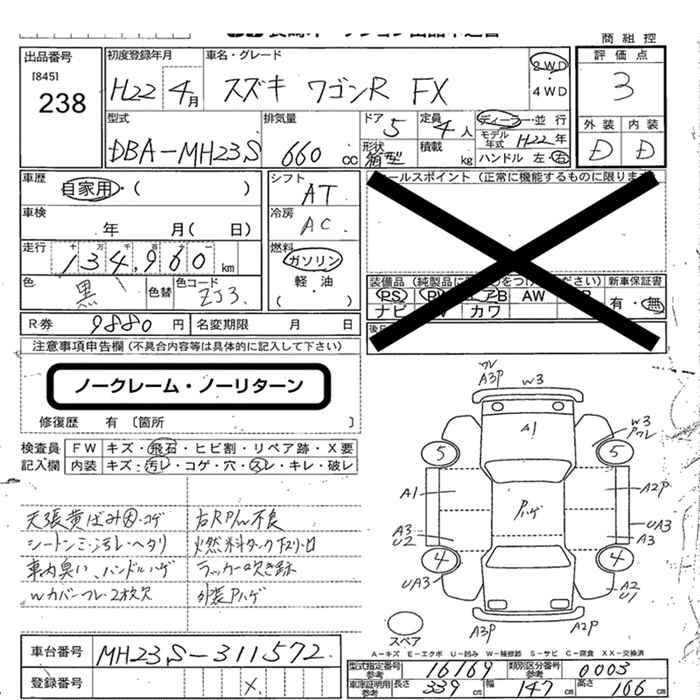 商組控
出品番号
[845]
238
初度登録年月
H22 4月
車名・グレード
スズキ ワゴンR FX
2WD
4WD
評価点
3
外装 内装
D D
型式
DBA-MH23S
排気量
660 cc
ドア 5
形状 箱型
定員 4人
積載 kg
ディーラー・並行
モデル年式 H22年
ハンドル 左・右
車歴
自家用・( )
車検
年 月( 日)
走行
十 万 千 百 十 一
134,960 km
色 黒 色替
色コード ZJ3
シフト
AT
冷房
AC
燃料
ガソリン
(軽・油)
セールスポイント (正常に機能するものに限ります)
新車保証書
有・無
PS
AW
ナビ カワ
R券 9880 円 名変期限 月 日
注意事項申告欄 (不具合内容等は具体的に記入して下さい)
ノークレーム・ノーリターン
修復歴 有 〔箇所 〕
検査員記入欄
FW キズ・飛石・ヒビ割・リペア跡・X要
内装 キズ・汚レ・コゲ・穴・スレ・キレ・破レ
天張黄ばみ大・コゲ 右RP/w不良
シートシミ・汚レ・ヘタリ 燃料タンク下スリ・凹
車内臭い、ハンドルハゲ ラッカー吹き跡
Wカバーフレ・2枚欠 外装Pハゲ
A3P W3
A1
W3
5 5
A1 Pハゲ A2P
UA3
A3 A3
U2
4 4
UA3 A2
U1
スペア
A3P A2P
A-キズ E-エクボ U-凹み W-補修跡 S-サビ C-腐食 XX-交換済
車台番号 MH23S-311572
登録番号 X
型式指定番号 参考 16169
類別区分番号 参考 0003
車庫証明用 参考 長さ 339 cm 幅 147 cm 高さ 166 cm